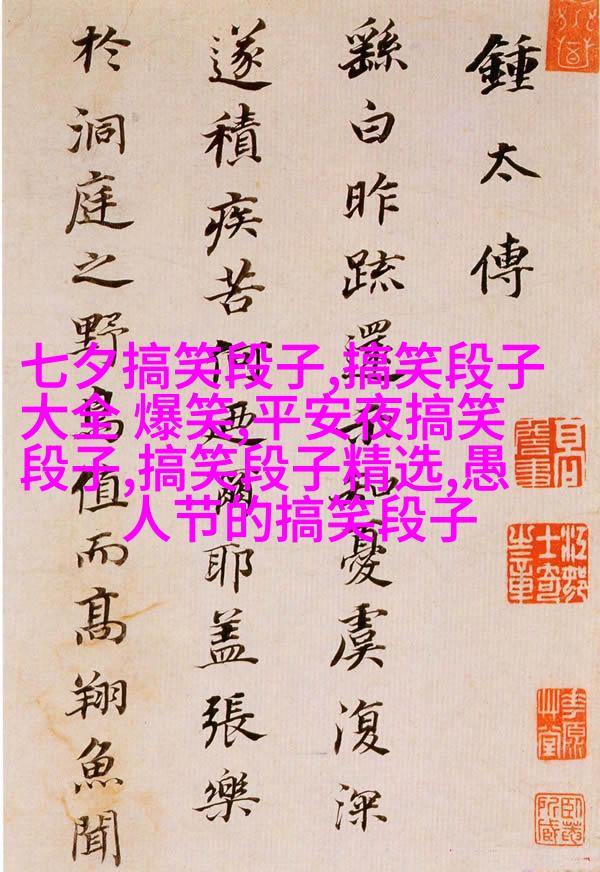 鍾太傅
繇白昨疏還示知憂虞復深
遂積疾苦何迺爾耶蓋張樂
於洞庭之野鳥值而高翔魚聞
七夕搞笑段子,搞笑段子
大全 爆笑,平安夜搞笑
段子,搞笑段子精选,愚
人节的搞笑段子